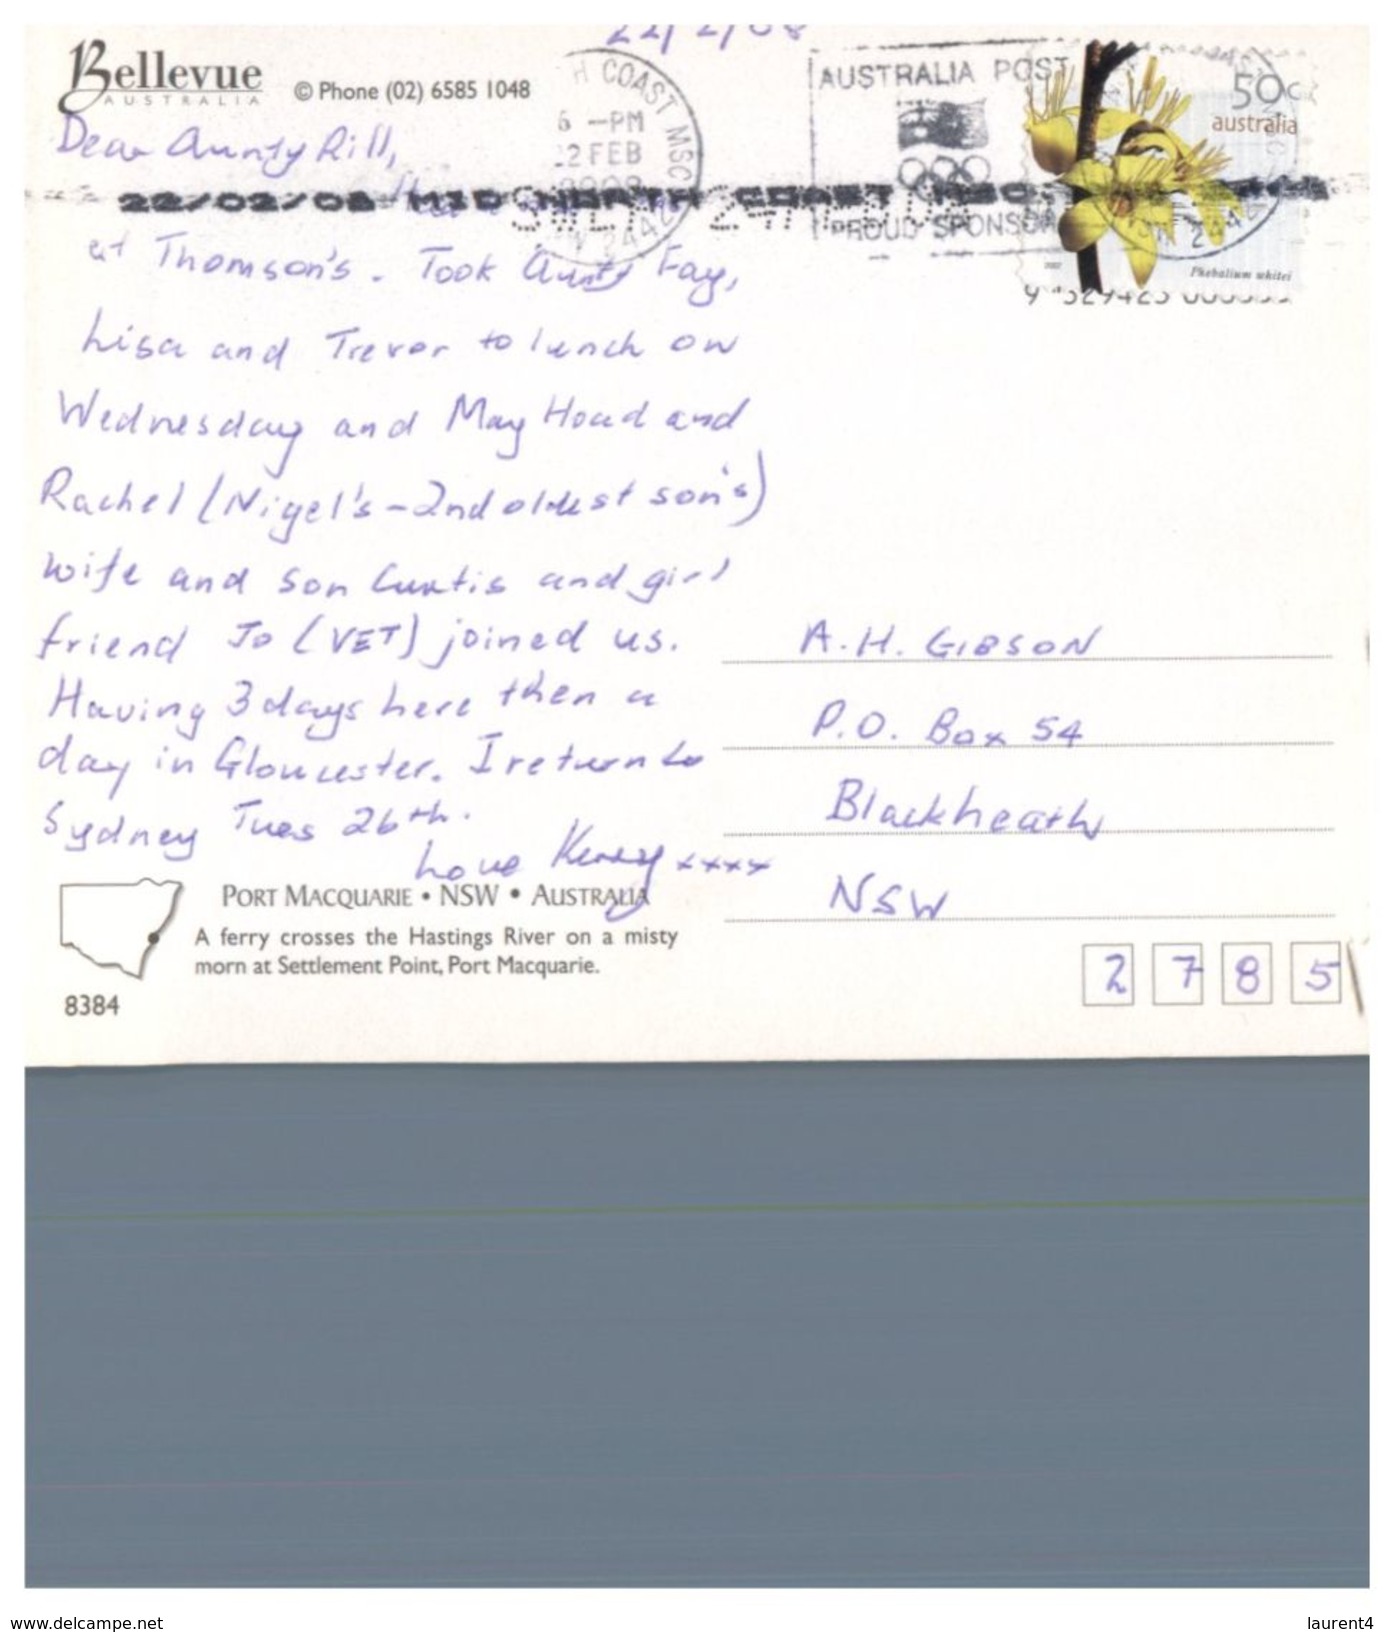 22/2/08
Bellevue
AUSTRALIA
© Phone (02) 6585 1048
H COAST MSC
6 -PM
2 FEB
2008
AUSTRALIA POST
PROUD SPONSOR
50c
australia
Phebalium whitei
2002
22/02/08 MID NORTH COAST MSC
Dear Aunty Rill,
at Thomson's. Took Aunty Fay,
Lisa and Trevor to lunch on
Wednesday and May Hoad and
Rachel (Nigel's - 2nd oldest son's)
wife and son Curtis and girl
friend Jo (VET) joined us.
Having 3 days here then a
day in Gloucester. I return to
Sydney Tues 26th.
Love Kerry xxxx
A.H. GIBSON
P.O. Box 54
Blackheath
NSW
2785
PORT MACQUARIE • NSW • AUSTRALIA
A ferry crosses the Hastings River on a misty
morn at Settlement Point, Port Macquarie.
8384
www.delcampe.net
laurent4